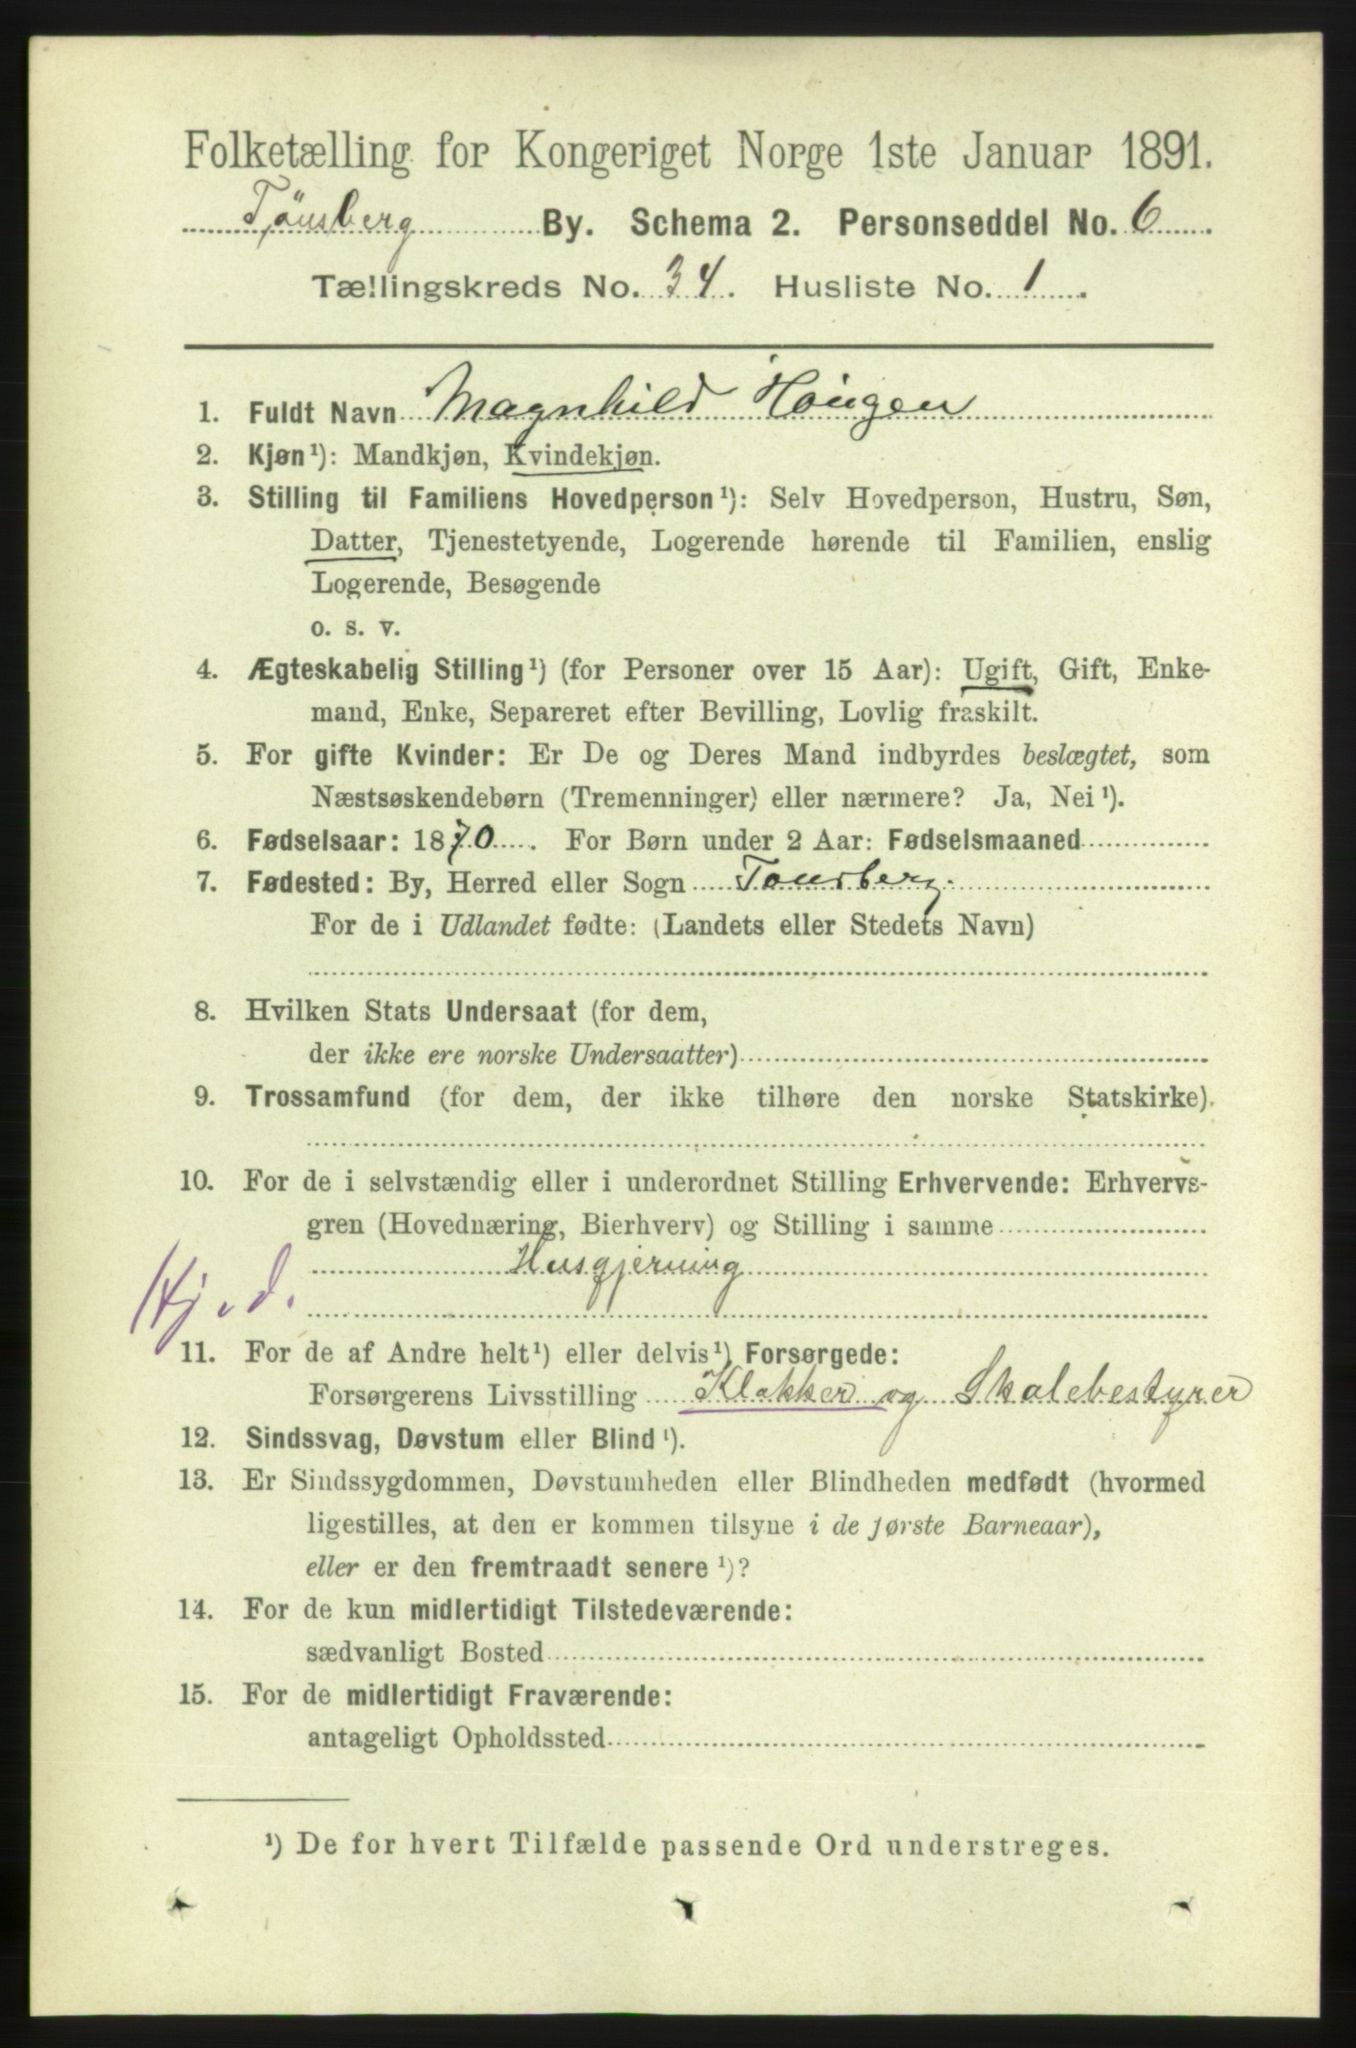 Folketælling for Kongeriget Norge 1ste Januar 1891.
Tønsberg By. Schema 2. Personseddel No. 6
Tællingskreds No. 34. Husliste No. 1.
1. Fuldt Navn Magnhild Hougen
2. Kjøn¹): Mandkjøn, Kvindekjøn.
3. Stilling til Familiens Hovedperson¹): Selv Hovedperson, Hustru, Søn,
Datter, Tjenestetyende, Logerende hørende til Familien, enslig
Logerende, Besøgende
o. s. v.
4. Ægteskabelig Stilling¹) (for Personer over 15 Aar): Ugift, Gift, Enke-
mand, Enke, Separeret efter Bevilling, Lovlig fraskilt.
5. For gifte Kvinder: Er De og Deres Mand indbyrdes beslægtet, som
Næstsøskendebørn (Tremenninger) eller nærmere? Ja, Nei¹).
6. Fødselsaar: 1870. For Børn under 2 Aar: Fødselsmaaned
7. Fødested: By, Herred eller Sogn Tønsberg.
For de i Udlandet fødte: (Landets eller Stedets Navn)
8. Hvilken Stats Undersaat (for dem,
der ikke ere norske Undersaatter)
9. Trossamfund (for dem, der ikke tilhøre den norske Statskirke).
10. For de i selvstændig eller i underordnet Stilling Erhvervende: Erhvervs-
gren (Hovednæring, Bierhverv) og Stilling i samme
Husgjerning
Hj. d.
11. For de af Andre helt¹) eller delvis¹) Forsørgede:
Forsørgerens Livsstilling Klokker og Skolebestyrer
12. Sindssvag, Døvstum eller Blind¹).
13. Er Sindssygdommen, Døvstumheden eller Blindheden medfødt (hvormed
ligestilles, at den er kommen tilsyne i de første Barneaar),
eller er den fremtraadt senere¹)?
14. For de kun midlertidigt Tilstedeværende:
sædvanligt Bosted
15. For de midlertidigt Fraværende:
antageligt Opholdssted
¹) De for hvert Tilfælde passende Ord understreges.